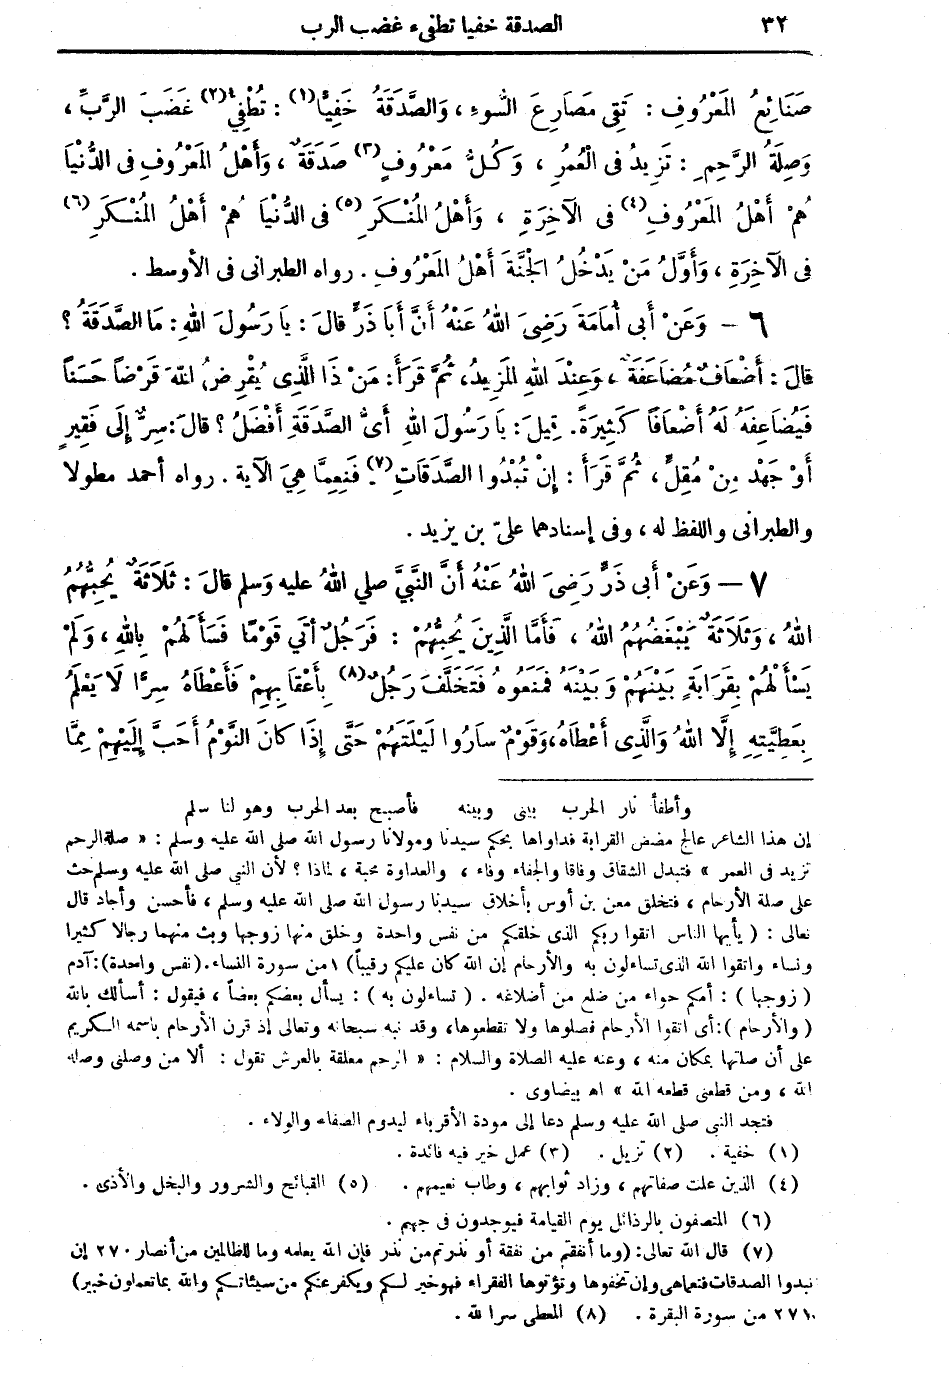 ٣٢ الصدقة خفيا تطفىء غضب الرب
صَنَائِعُ المَعْرُوفِ : تَقِى مَصَارِعَ السُّوءِ ، وَالصَّدَقَةُ خَفِيًّا(١) : تُطْفِئُ(٢) غَضَبَ الرَّبِّ ،
وَصِلَةُ الرَّحِمِ : تَزِيدُ فى الْعُمُرِ ، وَكُلُّ مَعْرُوفٍ(٣) صَدَقَةٌ ، وَأَهْلُ المَعْرُوفِ فى الدُّنْيَا
هُمْ أَهْلُ المَعْرُوفِ(٤) فى الْآخِرَةِ ، وَأَهْلُ المُنْكَرِ(٥) فى الدُّنْيَا هُمْ أَهْلُ المُنْكَرِ(٦)
فى الْآخِرَةِ ، وَأَوَّلُ مَنْ يَدْخُلُ الجَنَّةَ أَهْلُ المَعْرُوفِ . رواه الطبرانى فى الأوسط .
٦ – وَعَنْ أَبى أُمَامَةَ رَضِىَ اللهُ عَنْهُ أَنَّ أَبَا ذَرٍّ قالَ : يا رَسُولَ اللهِ : مَا الصَّدَقَةُ ؟
قالَ : أَضْعَافٌ مُضَاعَفَةٌ ، وَعِنْدَ اللهِ المَزِيدُ ، ثُمَّ قَرَأَ : مَنْ ذَا الَّذِى يُقْرِضُ اللهَ قَرْضًا حَسَنًا
فَيُضَاعِفَهُ لَهُ أَضْعَافًا كَثِيرَةً . قِيلَ : يا رَسُولَ اللهِ أَىُّ الصَّدَقَةِ أَفْضَلُ ؟ قالَ : سِرٌّ إلَى فَقِيرٍ
أَوْ جَهْدٌ مِنْ مُقِلٍّ ، ثُمَّ قَرَأَ : إنْ تُبْدُوا الصَّدَقَاتِ(٧) فَنِعِمَّا هِىَ الْآيَةَ . رواه أحمد مطولا
والطبرانى واللفظ له ، وفى إسنادهما علىّ بن يزيد .
٧ – وَعَنْ أَبى ذَرٍّ رَضِىَ اللهُ عَنْهُ أَنَّ النَّبِيَّ صلي اللهُ عليه وَسلم قالَ : ثَلَاثَةٌ يُحِبُّهُمُ
اللهُ ، وَثَلَاثَةٌ يُبْغِضُهُمُ اللهُ ، فَأَمَّا الَّذِينَ يُحِبُّهُمْ : فَرَجُلٌ أَتَى قَوْمًا فَسَأَلَهُمْ بِاللهِ ، وَلَمْ
يَسْأَلْهُمْ بِقَرَابَةٍ بَيْنَهُمْ وَبَيْنَهُ فَمَنَعُوهُ فَتَخَلَّفَ رَجُلٌ(٨) بِأَعْقَابِهِمْ فَأَعْطَاهُ سِرًّا لَا يَعْلَمُ
بِعَطِيَّتِهِ إلَّا اللهُ وَالَّذِى أَعْطَاهُ ، وَقَوْمٌ سارُوا لَيْلَتَهُمْ حَتَّى إذَا كانَ النَّوْمُ أَحَبَّ إلَيْهِمْ مِمَّا
وأطفأ نار الحرب بينى وبينه فأصبح بعد الحرب وهو لنا سلم
إن هذا الشاعر عالج مضض القرابة فداواها بحكم سيدنا ومولانا رسول الله صلى الله عليه وسلم : « صلة الرحم
تزيد فى العمر » فتبدل الشقاق وفاقا والجفاء وفاء ، والعداوة محبة ، لماذا ؟ لأن النبى صلى الله عليه وسلم حث
على صلة الأرحام ، فتخلق معن بن أوس بأخلاق سيدنا رسول الله صلى الله عليه وسلم ، فأحسن وأجاد قال
تعالى : ( يأيها الناس اتقوا ربكم الذى خلقكم من نفس واحدة وخلق منها زوجها وبث منهما رجالا كثيرا
ونساء واتقوا الله الذى تساءلون به والأرحام إن الله كان عليكم رقيبا) ١ من سورة النساء . (نفس واحدة) : آدم
( زوجها ) : أمكم حواء من ضلع من أضلاعه . ( تساءلون به ) : يسأل بعضكم بعضاً ، فيقول : أسألك بالله
( والأرحام ) : أى اتقوا الأرحام فصلوها ولا تقطعوها ، وقد نبه سبحانه وتعالى إذ قرن الأرحام باسمه الكريم
على أن صلتها بمكان منه ، وعنه عليه الصلاة والسلام : « الرحم معلقة بالعرش تقول : ألا من وصلنى وصله
الله ، ومن قطعنى قطعه الله » اه بيضاوى .
فتجد النبى صلى الله عليه وسلم دعا إلى مودة الأقرباء ليدوم الصفاء والولاء .
(١) خفية . (٢) تزيل . (٣) عمل خير فيه فائدة .
(٤) الذين علت صفاتهم ، وزاد ثوابهم ، وطاب نعيمهم . (٥) القبائح والشرور والبخل والأذى .
(٦) المتصفون بالرذائل يوم القيامة فيوجدون فى جهنم .
(٧) قال الله تعالى : (وما أنفقتم من نفقة أو نذرتم من نذر فإن الله يعلمه وما للظالمين من أنصار ٢٧٠ إن
تبدوا الصدقات فنعما هى وإن تخفوها وتؤتوها الفقراء فهو خير لكم ويكفر عنكم من سيئاتكم والله بما تعملون خبير)
٢٧١ من سورة البقرة . (٨) المعطى سرا لله .